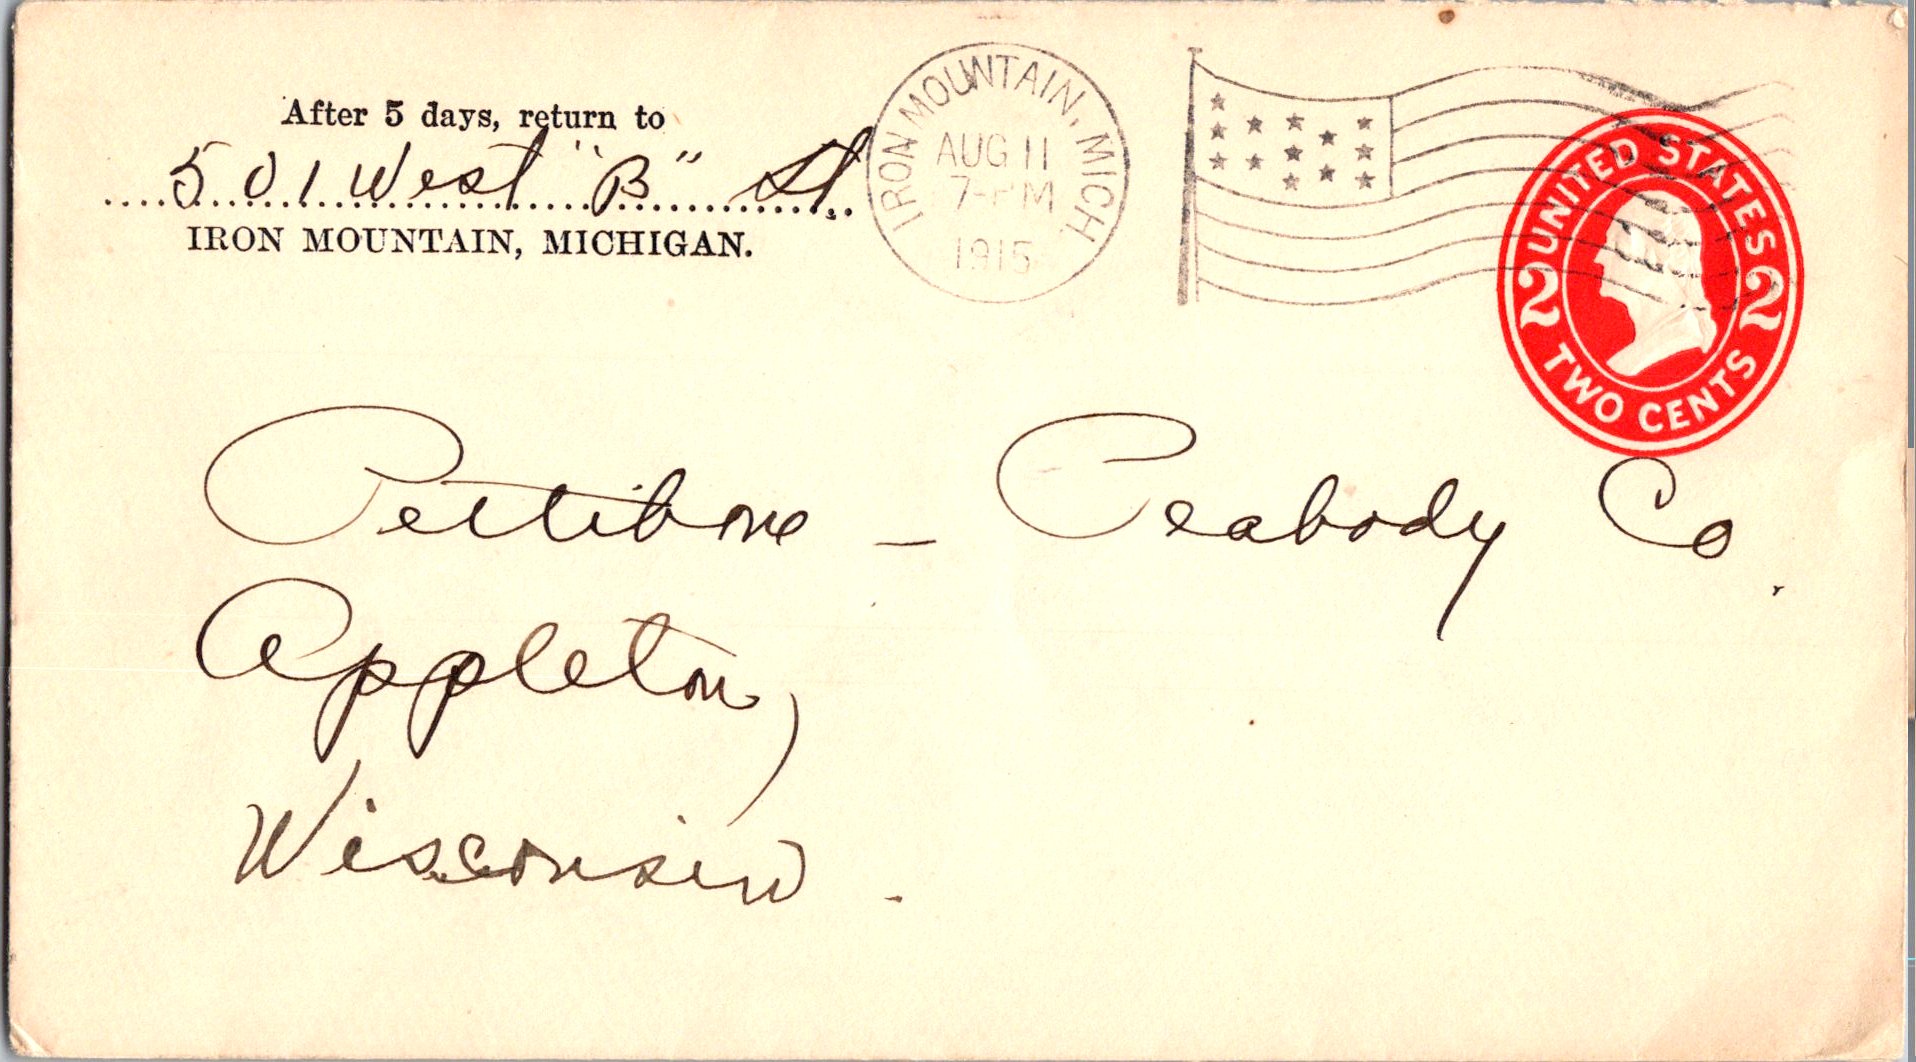 After 5 days, return to
501 West "B" St.
IRON MOUNTAIN, MICHIGAN.
IRON MOUNTAIN, MICH.
AUG 11
7-PM
1915
UNITED STATES
2 2
TWO CENTS
Pettibone - Peabody Co.
Appleton,
Wisconsin.